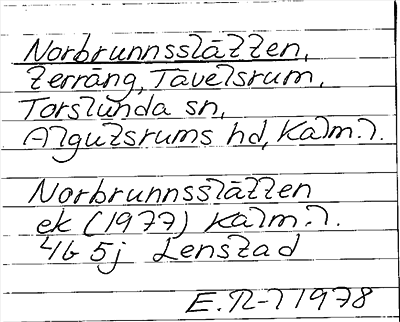 Norbrunnsslätten,
terräng, Tävelsrum,
Torslunda sn,
Algutsrums hd, Kalm.l.
Norbrunnsslätten
ek (1977) Kalm.l.
4G 5j Lenstad
E.N-l 1978